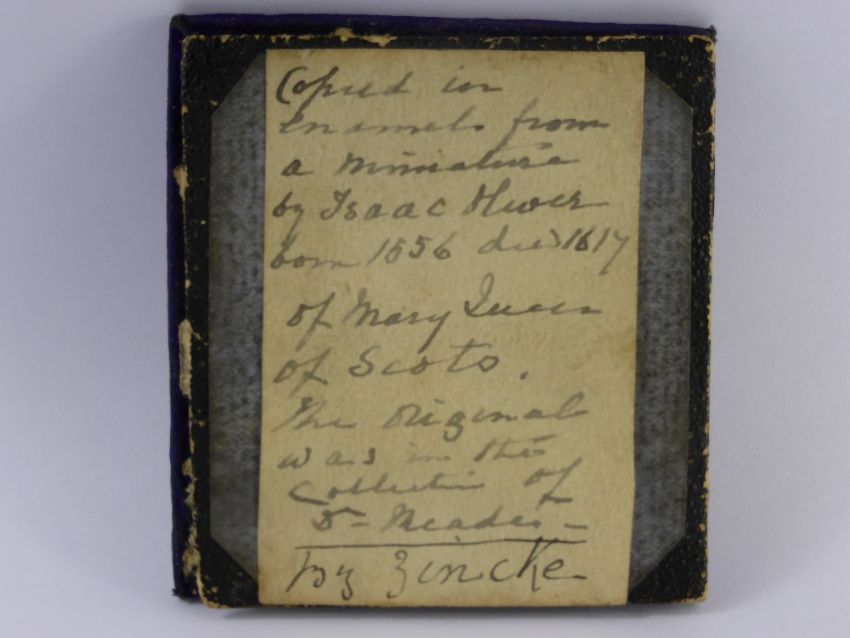 Copied in
enamels from
a miniature
by Isaac Oliver
born 1556 died 1617
of Mary Queen
of Scots.
The Original
was in the
Collection of
Dr Meades -
by Zincke